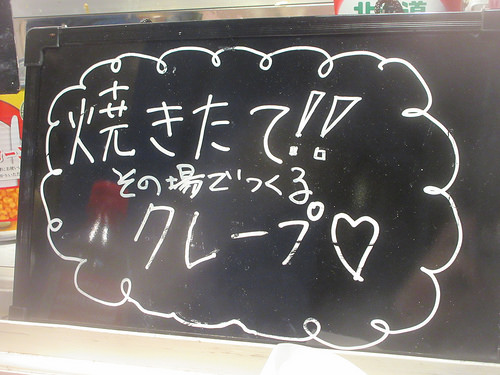 北海道
焼きたて!!
その場でつくる
クレープ♡